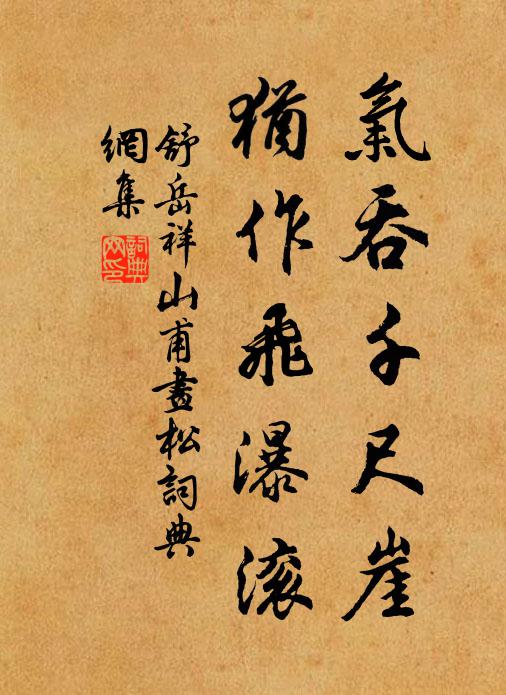 氣吞千尺崖
猶作飛瀑滚
舒岳祥山甫畫松詞典
網集
詞典網印